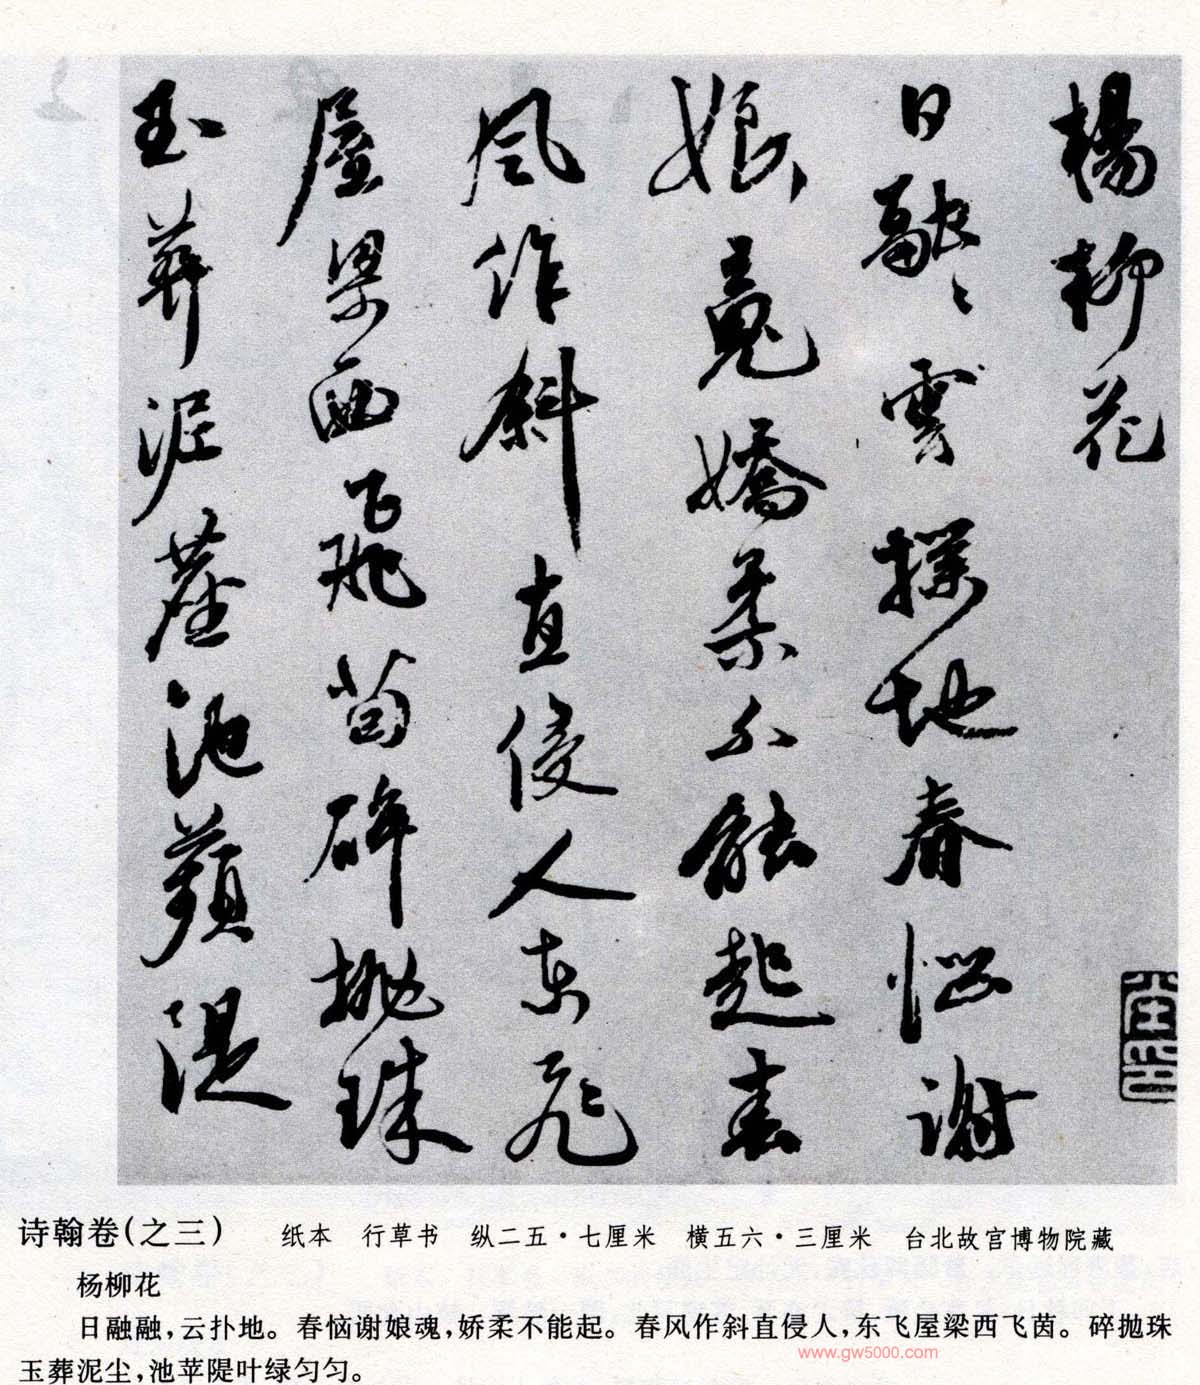 楊柳花
日融〻雲撲地春惱謝
娘魂嬌柔不能起春
風作斜直侵人東飛
屋梁西飛茵碎拋珠
玉葬泥塵池蘋隄
诗翰卷(之三) 纸本 行草书 纵二五·七厘米 横五六·三厘米 台北故宫博物院藏
杨柳花
日融融,云扑地。春恼谢娘魂,娇柔不能起。春风作斜直侵人,东飞屋梁西飞茵。碎抛珠
玉葬泥尘,池苹隄叶绿匀匀。
www.gw5000.com